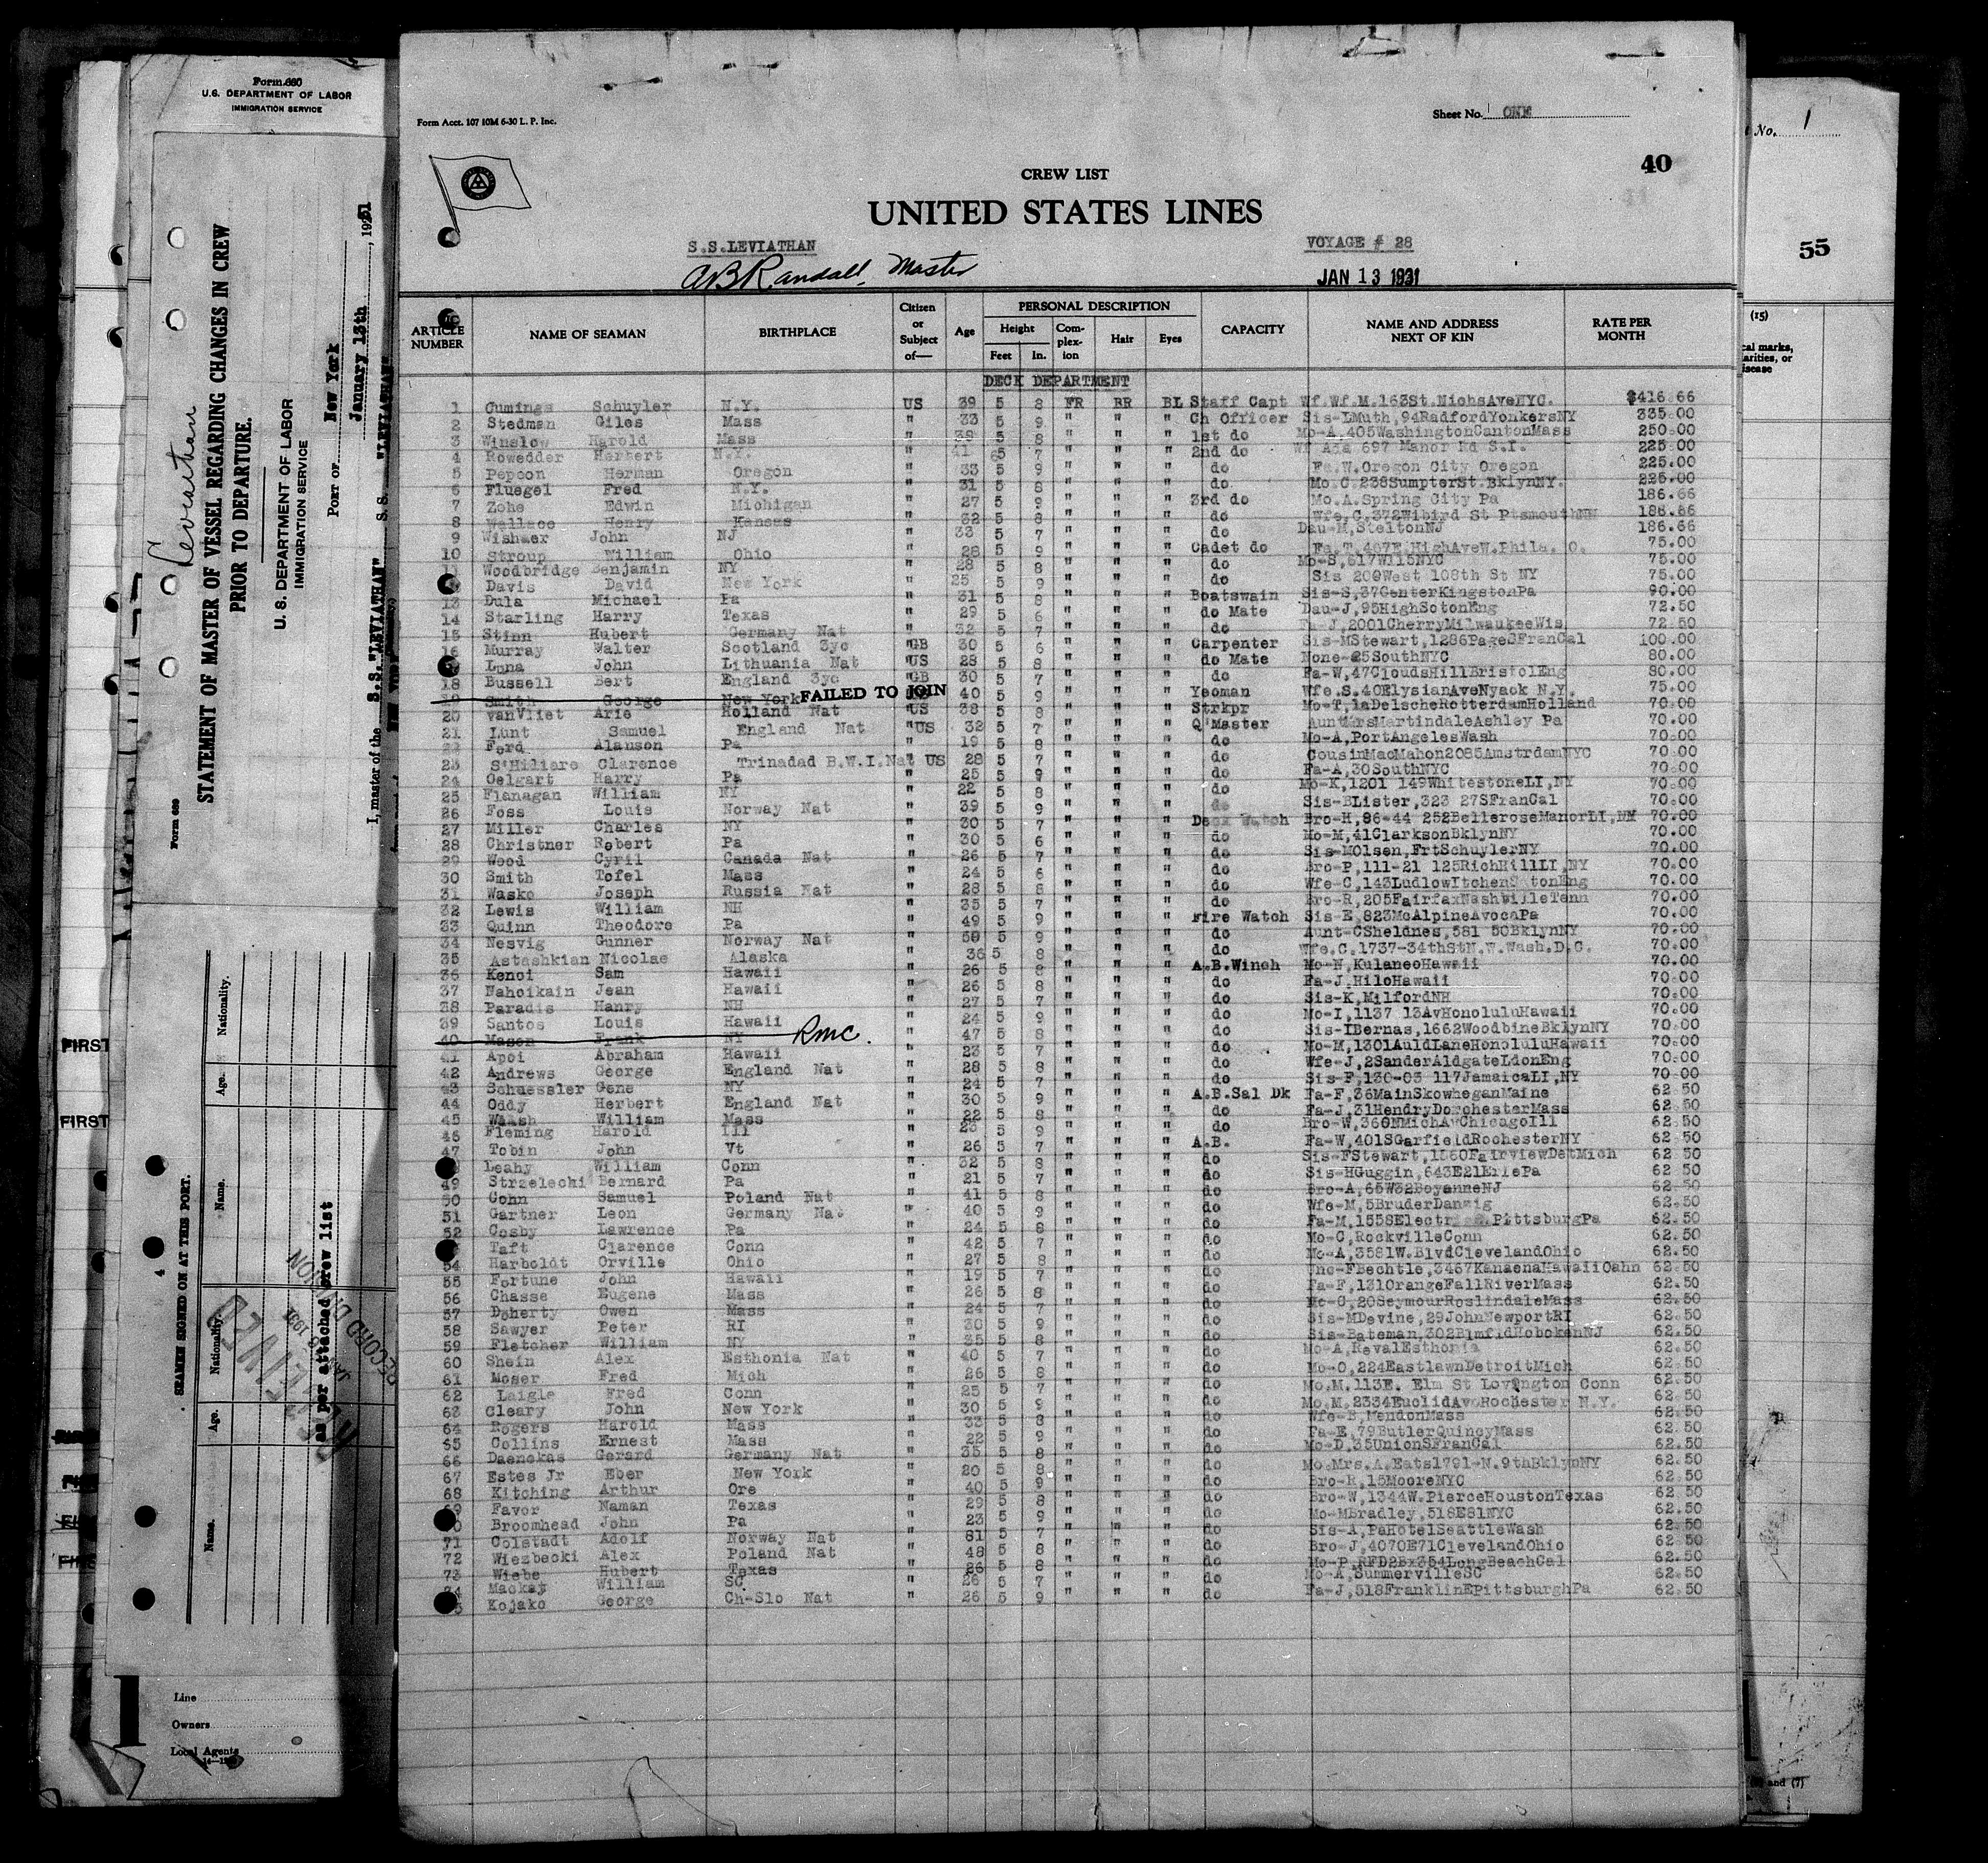 Form 680
U.S. DEPARTMENT OF LABOR
IMMIGRATION SERVICE
Leviathan
Form 689
STATEMENT OF MASTER OF VESSEL REGARDING CHANGES IN CREW
PRIOR TO DEPARTURE.
U. S. DEPARTMENT OF LABOR
IMMIGRATION SERVICE
PORT OF New York
January 13th, 1931
I, master of the S.S."LEVIATHAN" S. S. "LEVIATHAN"
SEAMEN SIGNED ON AT THIS PORT.
Name. Age. Nationality. Name. Age. Nationality.
as per attached crew list
RECEIVED
RECORD DIVISION
FIRST
FIRST
Line
Owners
Local Agents
Form Acct. 107 10M 6-30 L. P. Inc.
Sheet No. ONE
40
CREW LIST
UNITED STATES LINES
S.S.LEVIATHAN VOYAGE # 28
A B Randall, Master JAN 13 1931
ARTICLE NUMBER NAME OF SEAMAN BIRTHPLACE Citizen or Subject of— Age PERSONAL DESCRIPTION Height Feet In. Complexion Hair Eyes CAPACITY NAME AND ADDRESS NEXT OF KIN RATE PER MONTH
DECK DEPARTMENT
1 Cumings Schuyler N.Y. US 39 5 8 FR BR BL Staff Capt Wf.Wf.M.163St.NichsAveNYC. $416.66
2 Stedman Giles Mass " 33 5 9 " " " Ch Officer Sis-LMuth,94RadfordYonkersNY 335.00
3 Winslow Harold Mass " 39 5 8 " " " 1st do Mo-A,405WashingtonCantonMass 250.00
4 Rowedder Herbert N.Y. " 41 5 7 " " " 2nd do Wf Ada 697 Manor Rd S.I. 225.00
5 Pepoon Herman Oregon " 33 5 9 " " " do Fa.W.Oregon City Oregon 225.00
6 Fluegel Fred N.Y. " 31 5 8 " " " do Mo.C.238SumpterSt.BklynNY. 225.00
7 Zohe Edwin Michigan " 27 5 9 " " " 3rd do Mo.A.Spring City Pa 186.66
8 Wallace Henry Kansas " 32 5 8 " " " do Wfe,C,372Wibird St PtsmouthNH 186.66
9 Wishmer John NJ " 33 5 7 " " " do Dau-M,SteltonNJ 186.66
10 Stroup William Ohio " 28 5 9 " " " Cadet do Fa.T.407E.HighAveW.Phila. O. 75.00
11 Woodbridge Benjamin NY " 28 5 8 " " " do Mo-S,517W115NYC 75.00
Davis David New York " 25 5 9 " " " do Sis 209West 108th St NY 75.00
13 Dula Michael Pa " 31 5 8 " " " Boatswain Sis-S,37CenterKingstonPa 90.00
14 Starling Harry Texas " 29 5 6 " " " do Mate Dau-J,95HighSotonEng 72.50
15 Stinn Hubert Germany Nat " 32 5 7 " " " do Fa-J,2001CherryMilwaukeeWis 72.50
16 Murray Walter Scotland 3yc GB 30 5 6 " " " Carpenter Sis-MStewart,1286PageSFranCal 100.00
Luna John Lithuania Nat US 28 5 8 " " " do Mate None-25SouthNYC 80.00
18 Bussell Bert England 3yc GB 30 5 7 " " " do Fa-W,47CloudsHillBristolEng 80.00
19 Smith George New York FAILED TO JOIN 40 5 9 " " " Yeoman Wfe.S.40ElysianAveNyack N.Y. 75.00
20 VanVliet Arie Holland Nat US 38 5 8 " " " Strkpr Mo-T,1aDelscheRotterdamHolland 70.00
21 Lunt Samuel England Nat "US 32 5 7 " " " Q'Master AuntMrsMartindaleAshley Pa 70.00
22 Ford Alanson Pa " 19 5 8 " " " do Mo-A,PortAngelesWash 70.00
23 StHiliare Clarence Trinadad B.W.I.Nat US 28 5 7 " " " do CousinMacMahon2085AmstrdamNYC 70.00
24 Gelgart Harry Pa " 25 5 9 " " " do Fa-A,30SouthNYC 70.00
25 Flanagan William NY " 22 5 8 " " " do Mo-K,1201 149WhitestoneLI,NY 70.00
26 Foss Louis Norway Nat " 39 5 9 " " " do Sis-BLister,323 27SFranCal 70.00
27 Miller Charles NY " 30 5 7 " " " Deck Watch Bro-H,86-44 252BelleroseManorLI,NY 70.00
28 Christner Robert Pa " 30 5 6 " " " do Mo-M,41ClarksonBklynNY 70.00
29 Wood Cyril Canada Nat " 26 5 7 " " " do Sis-MOlsen,FrtSchuylerNY 70.00
30 Smith Tofel Mass " 24 5 6 " " " do Bro-P,111-21 125RichHillLI,NY 70.00
31 Wasko Joseph Russia Nat " 28 5 8 " " " do Wfe-C,143LudlowItchenSotonEng 70.00
32 Lewis William NH " 35 5 7 " " " do Bro-R,205FairfaxNashvilleTenn 70.00
33 Quinn Theodore Pa " 49 5 9 " " " Fire Watch Sis-E,823McAlpineAvocaPa 70.00
34 Nesvig Gunner Norway Nat " 50 5 9 " " " do Aunt-CSheldnes,581 50BklynNY 70.00
35 Astashkian Nicolae Alaska " 36 5 8 " " " do Wfe.C.1737-34thStN.W.Wash.D.C. 70.00
36 Kenoi Sam Hawaii " 26 5 8 " " " A.B.Winch Mo-N,KulaneoHawaii 70.00
37 Nahoikain Jean Hawaii " 26 5 8 " " " do Fa-J,HiloHawaii 70.00
38 Paradis Hanry NH " 27 5 7 " " " do Sis-K,MilfordNH 70.00
39 Santos Louis Hawaii " 24 5 9 " " " do Mo-I,1137 13AvHonoluluHawaii 70.00
40 Mason Frank NY RMC. " 47 5 8 " " " do Sis-IBernas,1662WoodbineBklynNY 70.00
41 Apoi Abraham Hawaii " 23 5 7 " " " do Mo-M,1301AuldLaneHonoluluHawaii 70.00
42 Andrews George England Nat " 28 5 8 " " " do Wfe-J,2SanderAldgateLdonEng 70.00
43 Schuessler Gene NY " 24 5 7 " " " do Sis-F,130-03 117JamaicaLI,NY 70.00
44 Oddy Herbert England Nat " 30 5 9 " " " A.B.Sal Dk Fa-F,36MainSkowheganMaine 62.50
45 Walsh William Mass " 22 5 8 " " " do Fa-J,31HendryDorchesterMass 62.50
46 Fleming Harold Ill " 23 5 9 " " " do Bro-W,360NMichAvChicagoIll 62.50
47 Tobin John Vt " 26 5 7 " " " A.B. Fa-W,401SGarfieldRochesterNY 62.50
Leahy William Conn " 32 5 8 " " " do Sis-FStewart,1560FairviewDetMich 62.50
49 Strzelecki Bernard Pa " 21 5 7 " " " do Sis-HGuggin,643E21EriePa 62.50
50 Cohn Samuel Poland Nat " 41 5 8 " " " do Bro-A,65W32BoyanneNJ 62.50
51 Gartner Leon Germany Nat " 40 5 9 " " " do Wfe-M,5BruderDanzig 62.50
52 Cosby Lawrence Pa " 24 5 8 " " " do Fa-M,155SElectric PittsburgPa 62.50
Taft Clarence Conn " 42 5 7 " " " do Mo-C,RockvilleConn 62.50
54 Harboldt Orville Ohio " 27 5 8 " " " do Mo-A,3581W.BlvdClevelandOhio 62.50
55 Fortune John Hawaii " 19 5 7 " " " do Unc-FBechtle,3467KanaenaHawaiiOahn 62.50
56 Chasse Eugene Mass " 26 5 8 " " " do Fa-F,131OrangeFallRiverMass 62.50
57 Doherty Owen Mass " 24 5 7 " " " do Mo-C,20SeymourRoslindaleMass 62.50
58 Sawyer Peter RI " 30 5 9 " " " do Sis-MDevine,29JohnNewportRI 62.50
59 Fletcher William NY " 35 5 8 " " " do Sis-Bateman,302BlmfldHobokenNJ 62.50
60 Shein Alex Esthonia Nat " 40 5 7 " " " do Mo-A,RevalEsthonia 62.50
61 Moser Fred Mich " 26 5 8 " " " do Mo-O,224EastlawnDetroitMich 62.50
62 Laigle Fred Conn " 25 5 7 " " " do Mo.M.113E. Elm St Lovington Conn 62.50
63 Cleary John New York " 30 5 9 " " " do Mo.M.2334EuclidAveRochester N.Y. 62.50
64 Rogers Harold Mass " 33 5 8 " " " do Wfe-B,MendonMass 62.50
65 Collins Ernest Mass " 22 5 9 " " " do Fa-E,79ButlerQuincyMass 62.50
66 Daenekas Gerard Germany Nat " 35 5 8 " " " do Mo-D,35UnionSFranCal 62.50
67 Estes Jr Eber New York " 20 5 8 " " " do Mo.Mrs.A.Eats1791-N.9thBklynNY 62.50
68 Kitching Arthur Ore " 40 5 9 " " " do Bro-R,15MooreNYC 62.50
69 Favor Naman Texas " 29 5 8 " " " do Bro-W,1344W.PierceHoustonTexas 62.50
Broomhead John Pa " 23 5 9 " " " do Mo-MBradley,518E81NYC 62.50
71 Colstadt Adolf Norway Nat " 31 5 7 " " " do Sis-A,PaHotelSeattleWash 62.50
72 Wiezbecki Alex Poland Nat " 48 5 8 " " " do Bro-J,4070E71ClevelandOhio 62.50
73 Wiebe Hubert Texas " 26 5 8 " " " do Mo-P,RFD2Bx354LongBeachCal 62.50
74 Mackay William SC " 26 5 7 " " " do Mo-A,SummervilleSC 62.50
Kojako George Ch-Slo Nat " 26 5 9 " " " do Fa-J,518FranklinEPittsburghPa 62.50
No. 1
55
(15)